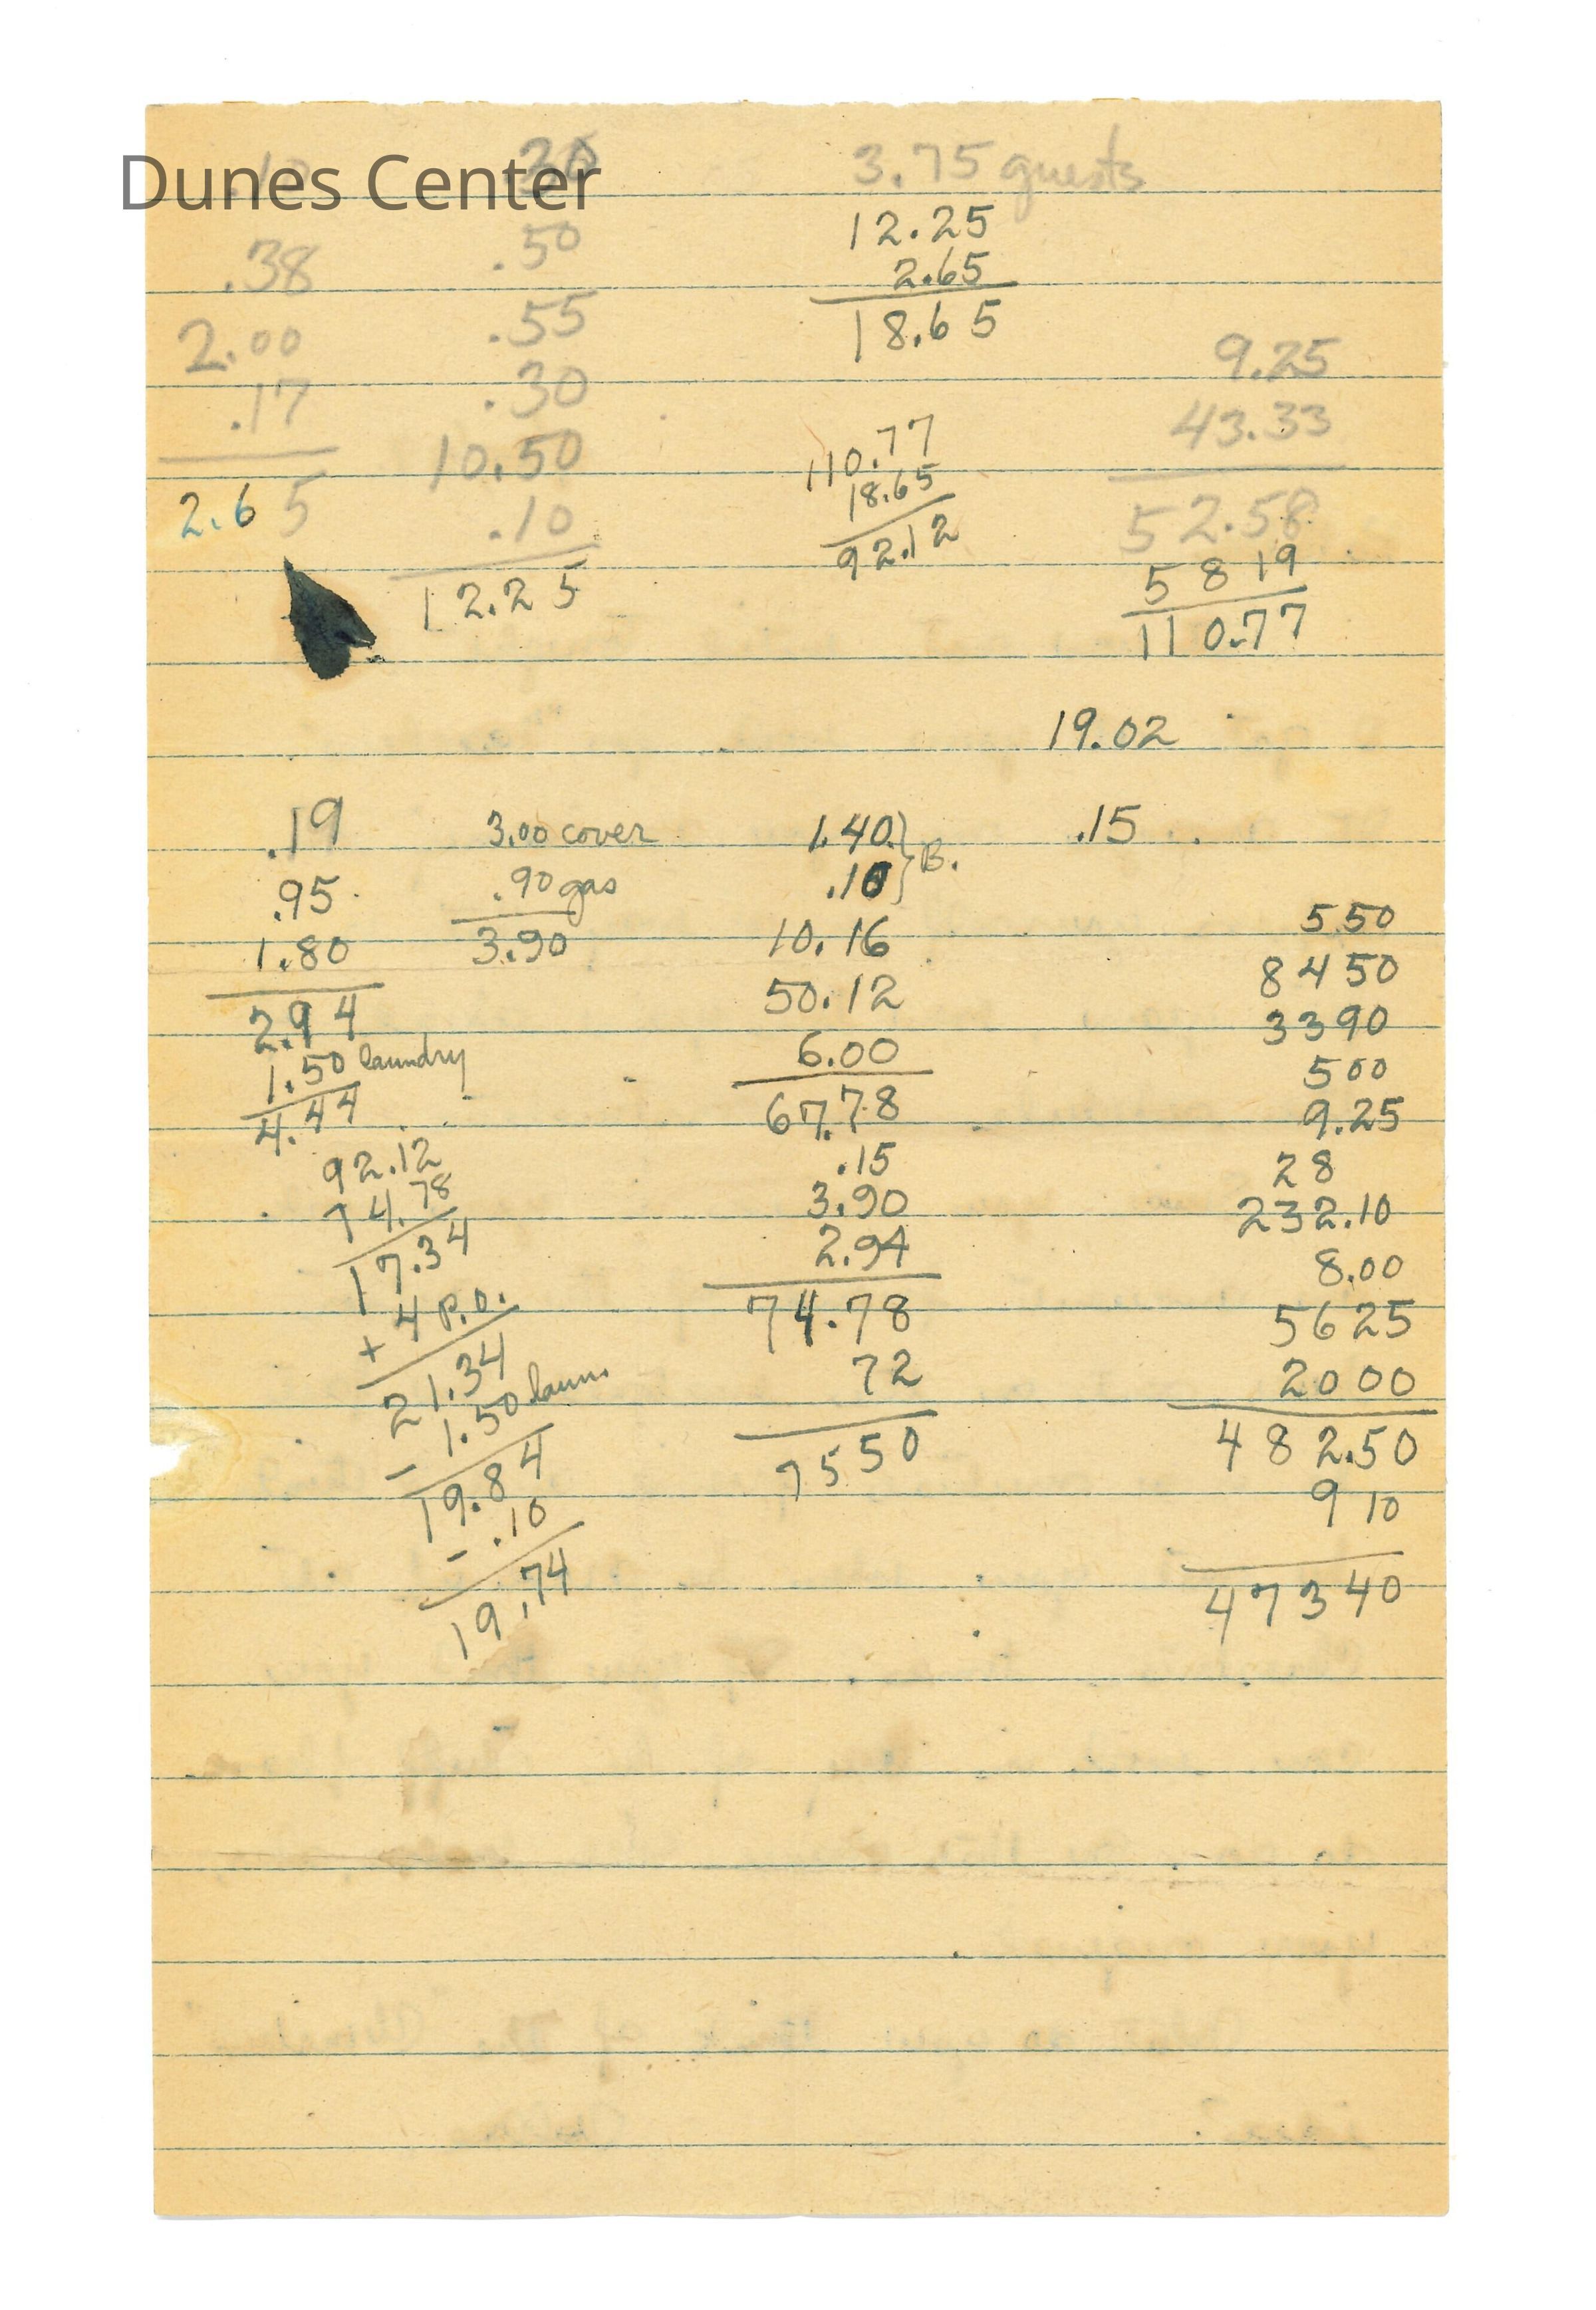 Dunes Center
.10
.38
2.00
.17
2.65
.30
.50
.55
.30
10.50
.10
12.25
3.75 guests
12.25
2.65
18.65
110.77
18.65
92.12
9.25
43.33
52.58
5819
110.77
19.02
.19
.95
1.80
2.94
1.50 laundry
4.44
92.12
74.78
17.34
+ 4 P.O.
21.34
- 1.50 laun.
19.84
- .10
19.74
3.00 cover
.90 gas
3.90
1.40 } B.
.10
10.16
50.12
6.00
67.78
.15
3.90
2.94
74.78
72
7550
.15
5.50
8450
3390
500
9.25
28
232.10
8.00
5625
2000
482.50
9 10
47340